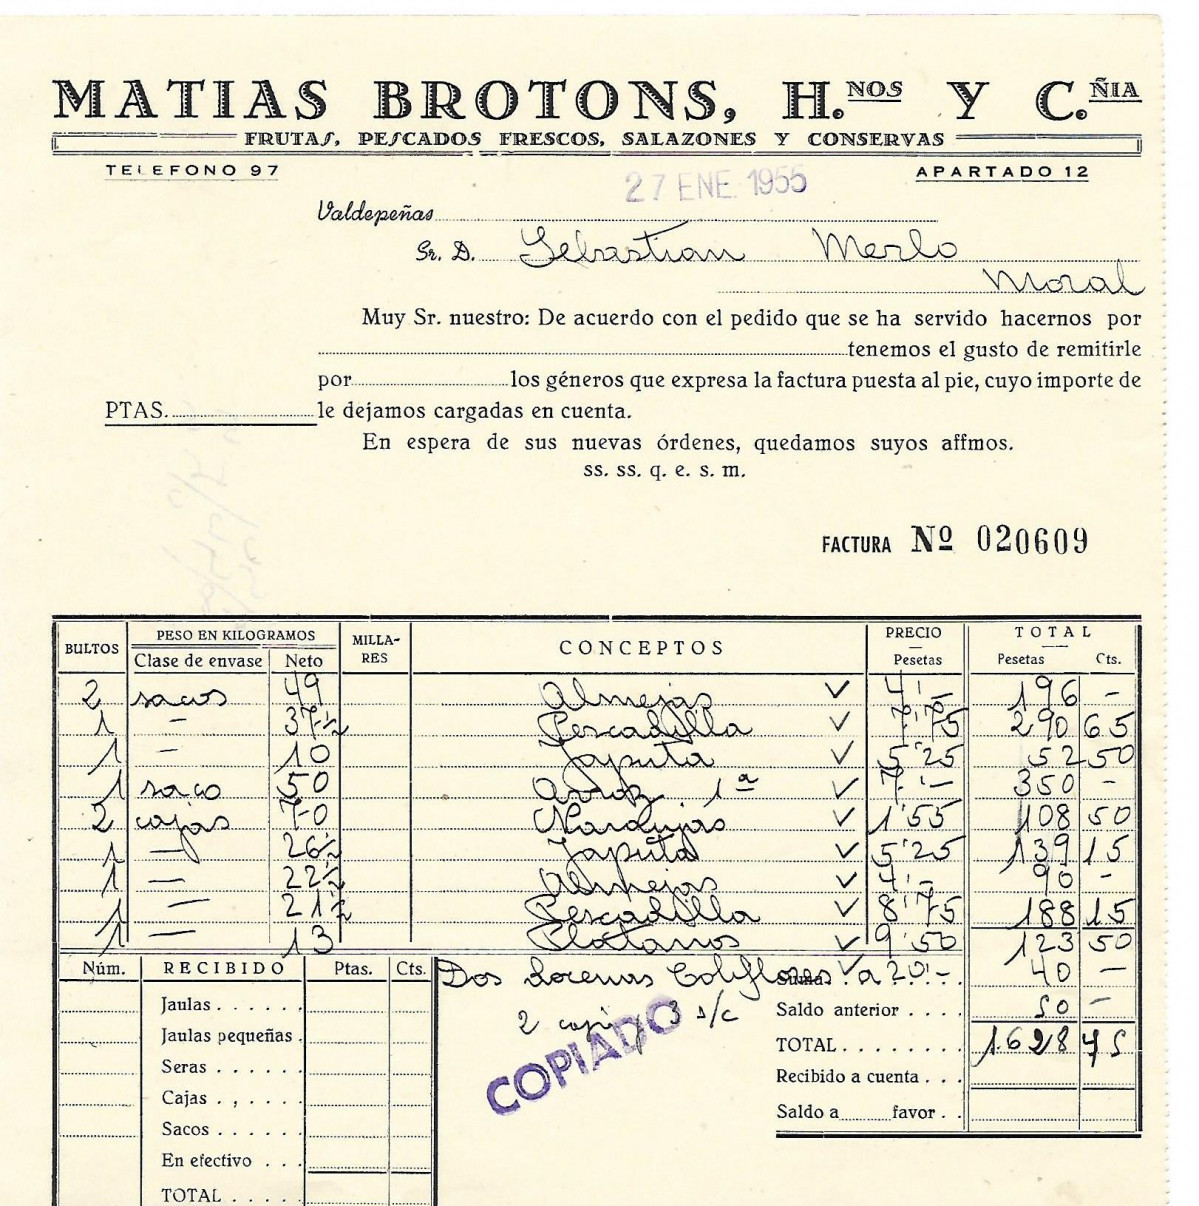 MATIAS BROTONS, H.NOS Y C.ÑIA
FRUTAS, PESCADOS FRESCOS, SALAZONES Y CONSERVAS
TELEFONO 97
APARTADO 12
27 ENE. 1955
Valdepeñas
Sr. D. Sebastian Merlo
Moral
Muy Sr. nuestro: De acuerdo con el pedido que se ha servido hacernos por
tenemos el gusto de remitirle
por los géneros que expresa la factura puesta al pie, cuyo importe de
PTAS. le dejamos cargadas en cuenta.
En espera de sus nuevas órdenes, quedamos suyos affmos.
ss. ss. q. e. s. m.
FACTURA Nº 020609
BULTOS PESO EN KILOGRAMOS MILLA-RES CONCEPTOS PRECIO TOTAL
Clase de envase Neto Pesetas Pesetas Cts.
2 sacos 49 Almejas ✓ 4'- 196 -
1 - 37½ Pescadilla ✓ 7'75 290 65
1 - 10 Japuta ✓ 5'25 52 50
1 saco 50 Arroz 1ª ✓ 7'- 350 -
2 cajas 70 Naranjas ✓ 1'55 108 50
1 - 26½ Japuta ✓ 5'25 139 15
1 - 22½ Almejas ✓ 4'- 90 -
1 - 21½ Pescadilla ✓ 8'75 188 15
1 - 13 Platanos ✓ 9'50 123 50
Dos docenas Coliflores ✓ a 20'- Suma. 40 -
Núm. RECIBIDO Ptas. Cts.
Jaulas . . . . . .
Saldo anterior . . . . 50 -
2 3 s/c
Jaulas pequeñas .
TOTAL . . . . . . . 1.628 45
COPIADO
Seras . . . . . .
Recibido a cuenta . . .
Cajas . . . . . .
Saldo a favor . .
Sacos . . . . . .
En efectivo . . .
TOTAL . . . . .